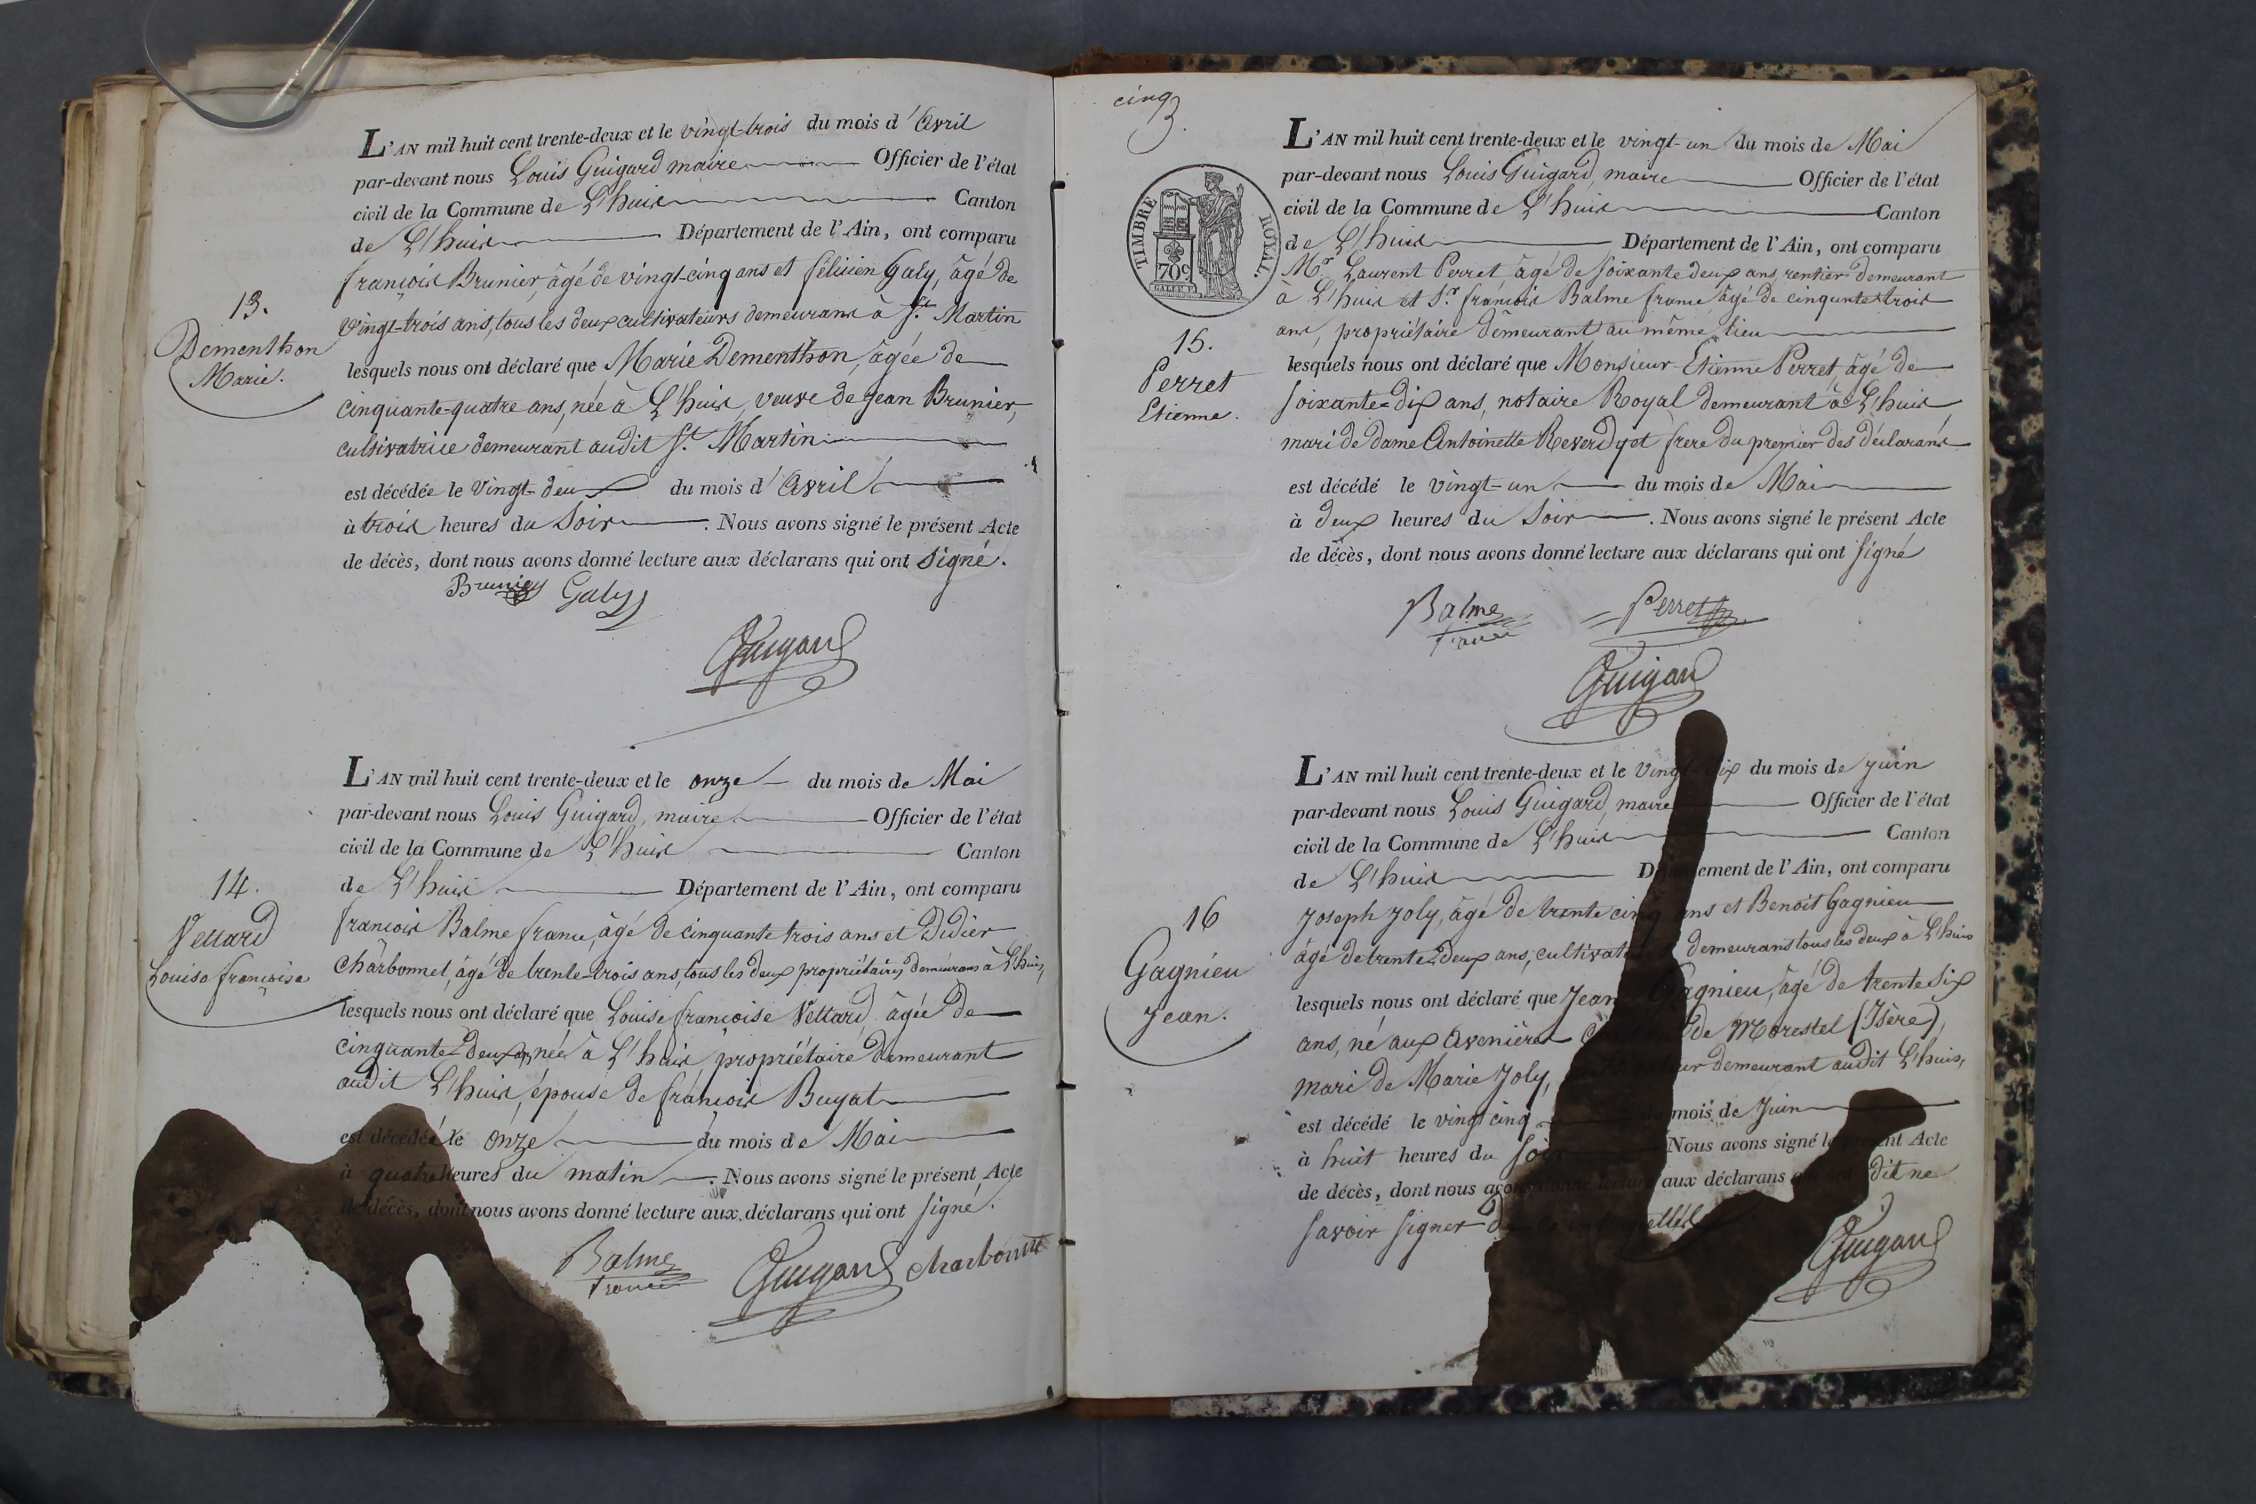 L'AN mil huit cent trente-deux et le vingt-trois du mois d'Avril
par-devant nous Louis Guigard maire Officier de l'état
civil de la Commune de L'huis Canton
de L'huis Département de l'Ain, ont comparu
françois Brunier, âgé de vingt-cinq ans et félicien Galy, âgé de
vingt-trois ans, tous les deux cultivateurs demeurans à St. Martin
lesquels nous ont déclaré que Marie Dementhon, âgée de
cinquante-quatre ans, née à L'huis, veuve de Jean Brunier,
cultivatrice demeurant audit St. Martin
est décédée le vingt-deux du mois d'Avril
à trois heures du Soir. Nous avons signé le présent Acte
de décès, dont nous avons donné lecture aux déclarans qui ont signé.
Brunier Galy
Guigard
13.
Dementhon
Marie.
L'AN mil huit cent trente-deux et le onze du mois de Mai
par-devant nous Louis Guigard, maire Officier de l'état
civil de la Commune de L'huis Canton
de L'huis Département de l'Ain, ont comparu
françois Balme franc, âgé de cinquante trois ans et Didier
Charbonnet, âgé de trente-trois ans, tous les deux propriétaires demeurans à L'huis,
lesquels nous ont déclaré que Louise françoise Vettard âgée de
cinquante-deux ans, née à L'huis, propriétaire demeurant
audit L'huis, épouse de françois Buyat
est décédée le onze du mois de Mai
à quatre heures du matin. Nous avons signé le présent Acte
de décès, dont nous avons donné lecture aux déclarans qui ont signé.
Balme Guigard Charbonnet
franc
14.
Vettard
Louise françoise
cinq
TIMBRE ROYAL.
70c
L'AN mil huit cent trente-deux et le vingt-un du mois de Mai
par-devant nous Louis Guigard, maire Officier de l'état
civil de la Commune de L'huis Canton
de L'huis Département de l'Ain, ont comparu
Mr. Laurent Perret âgé de soixante deux ans rentier demeurant
à L'huis et Sr. françois Balme franc âgé de cinquante trois
ans, propriétaire demeurant au même lieu
lesquels nous ont déclaré que Monsieur Etienne Perret, âgé de
soixante-dix ans, notaire Royal demeurant à L'huis
mari de dame Antoinette Reverdy et frere du premier des déclarans
est décédé le vingt-un du mois de Mai
à deux heures du Soir. Nous avons signé le présent Acte
de décès, dont nous avons donné lecture aux déclarans qui ont signé
Balme Perret
franc
Guigard
15.
Perret
Etienne.
L'AN mil huit cent trente-deux et le vingt-six du mois de juin
par-devant nous Louis Guigard, maire Officier de l'état
civil de la Commune de L'huis Canton
de L'huis Département de l'Ain, ont comparu
Joseph Joly, âgé de trente cinq ans et Benoit Gagnieu
âgé de trente-deux ans, demeurans tous les deux à L'huis
lesquels nous ont déclaré que Jean Gagnieu, âgé de trente Six
ans, né aux Avenières de Morestel (Isère),
mari de Marie Joly, demeurant audit L'huis,
est décédé le vingt cinq mois de Juin
à huit heures du Soir Nous avons signé le présent Acte
de décès, dont nous avons donné lecture aux déclarans qui ont dit ne
savoir signer de ce interpellés
Guigard
16
Gagnieu
Jean.